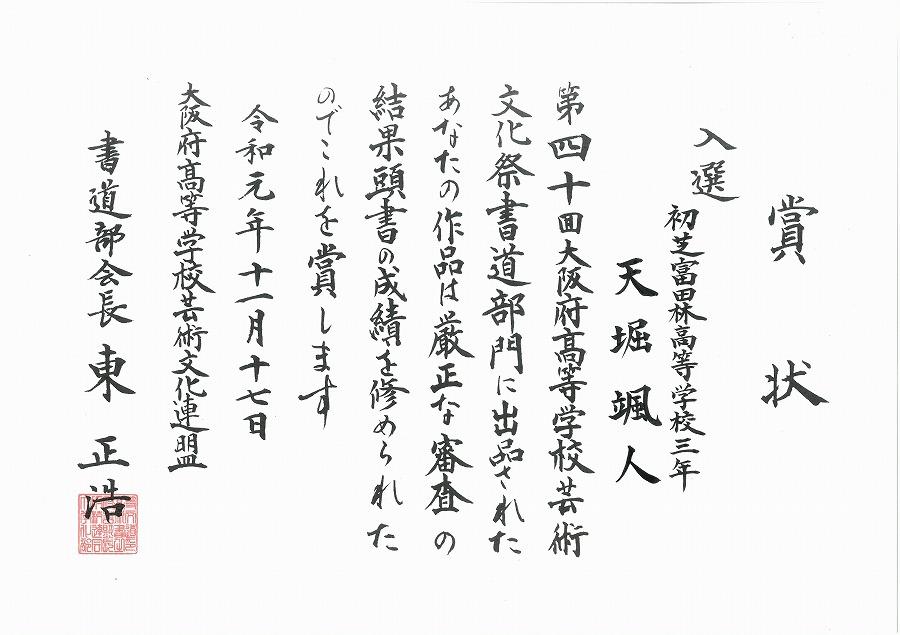 賞状
入選
初芝富田林高等学校三年
天堀颯人
第四十回大阪府高等学校芸術
文化祭書道部門に出品された
あなたの作品は厳正な審査の
結果頭書の成績を修められた
のでこれを賞します
令和元年十一月十七日
大阪府高等学校芸術文化連盟
書道部会長 東 正浩